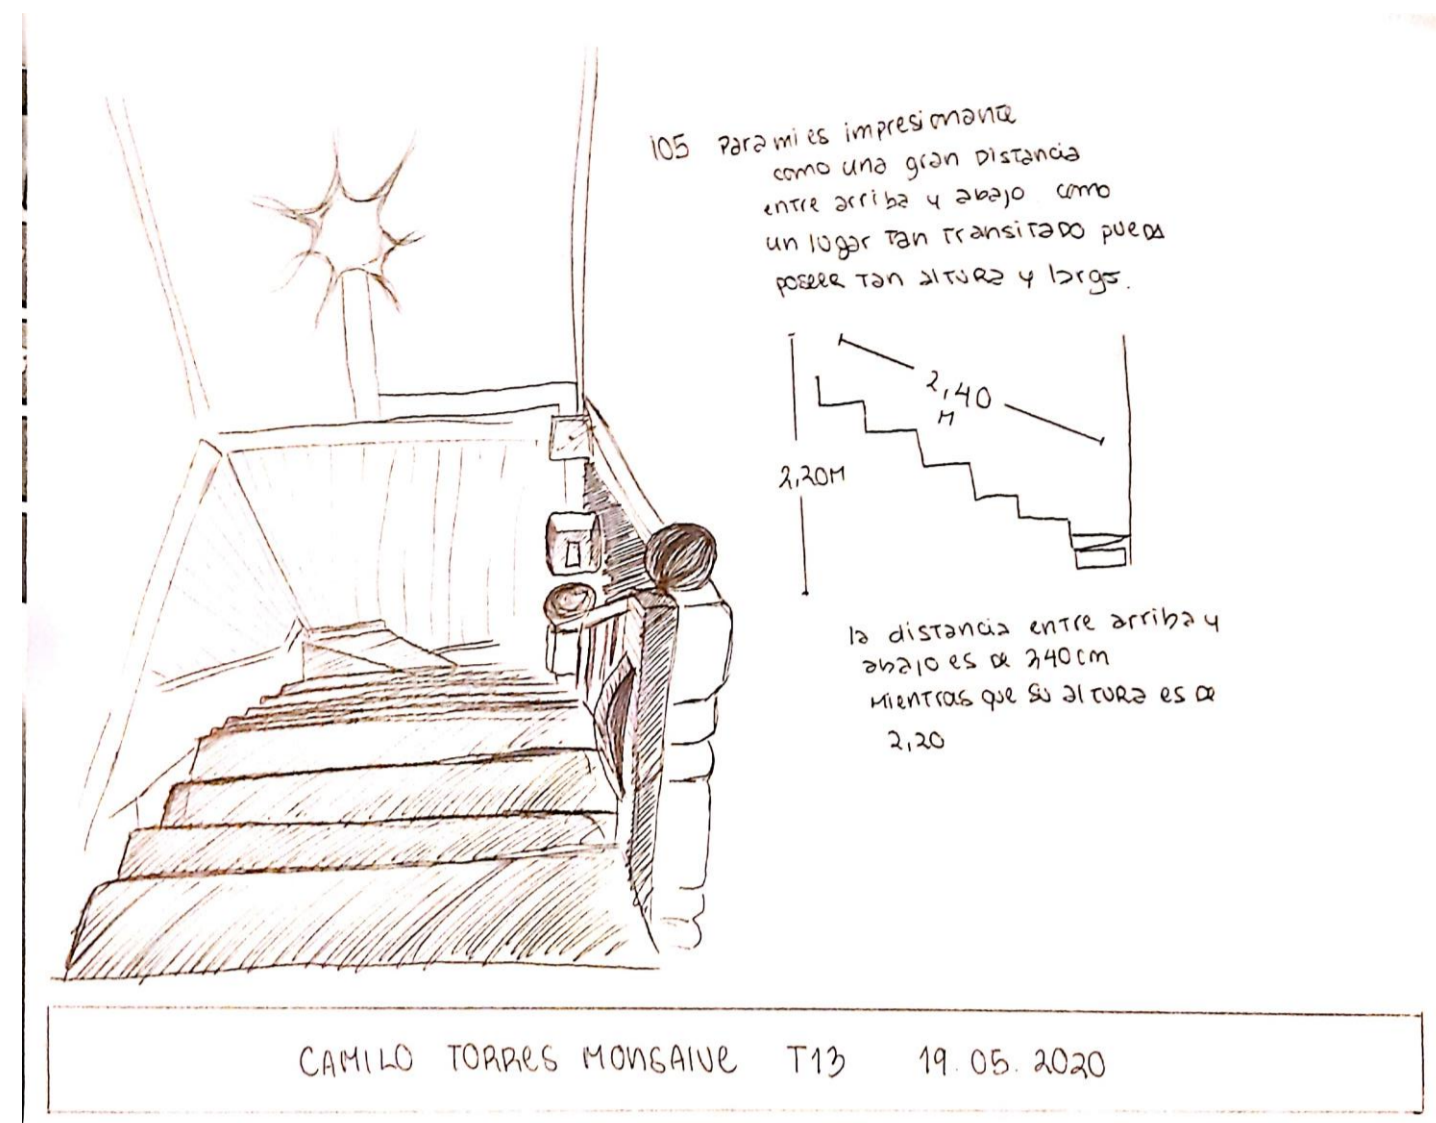 105 Para mi es impresionante
como una gran Distancia
entre arriba y abajo como
un lugar tan transitado pueda
poseer tan altura y largo.
2,40
M
2,20M
la distancia entre arriba y
abajo es de 240cm
Mientras que su altura es de
2,20
CAMILO TORRES MONSALVE T13 19.05.2020